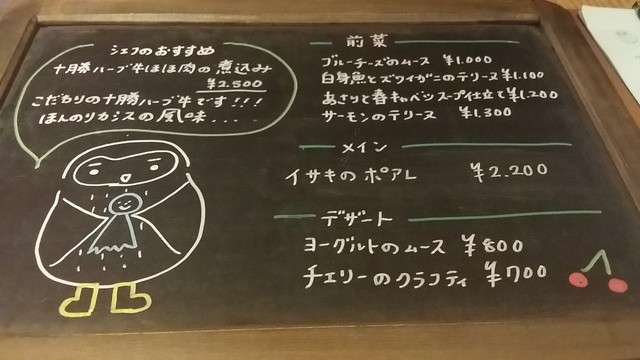 シェフのおすすめ
十勝ハーブ牛ほほ肉の煮込み
¥2.500
こだわりの十勝ハーブ牛です!!!
ほんのりカシスの風味.....
前菜
ブルーチーズのムース ¥1.000
白身魚とズワイガニのテリーヌ ¥1.100
あさりと春キャベツスープ仕立て ¥1.200
サーモンのテリーヌ ¥1.300
メイン
イサキのポアレ ¥2.200
デザート
ヨーグルトのムース ¥800
チェリーのクラフティ ¥700